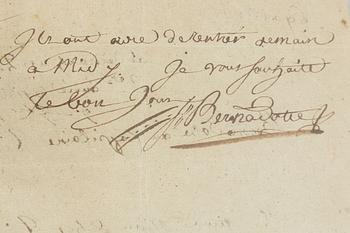 Ils ont ordre de rentrer demain
à Midy Je vous souhaite
le bon Jour
J Bernadotte